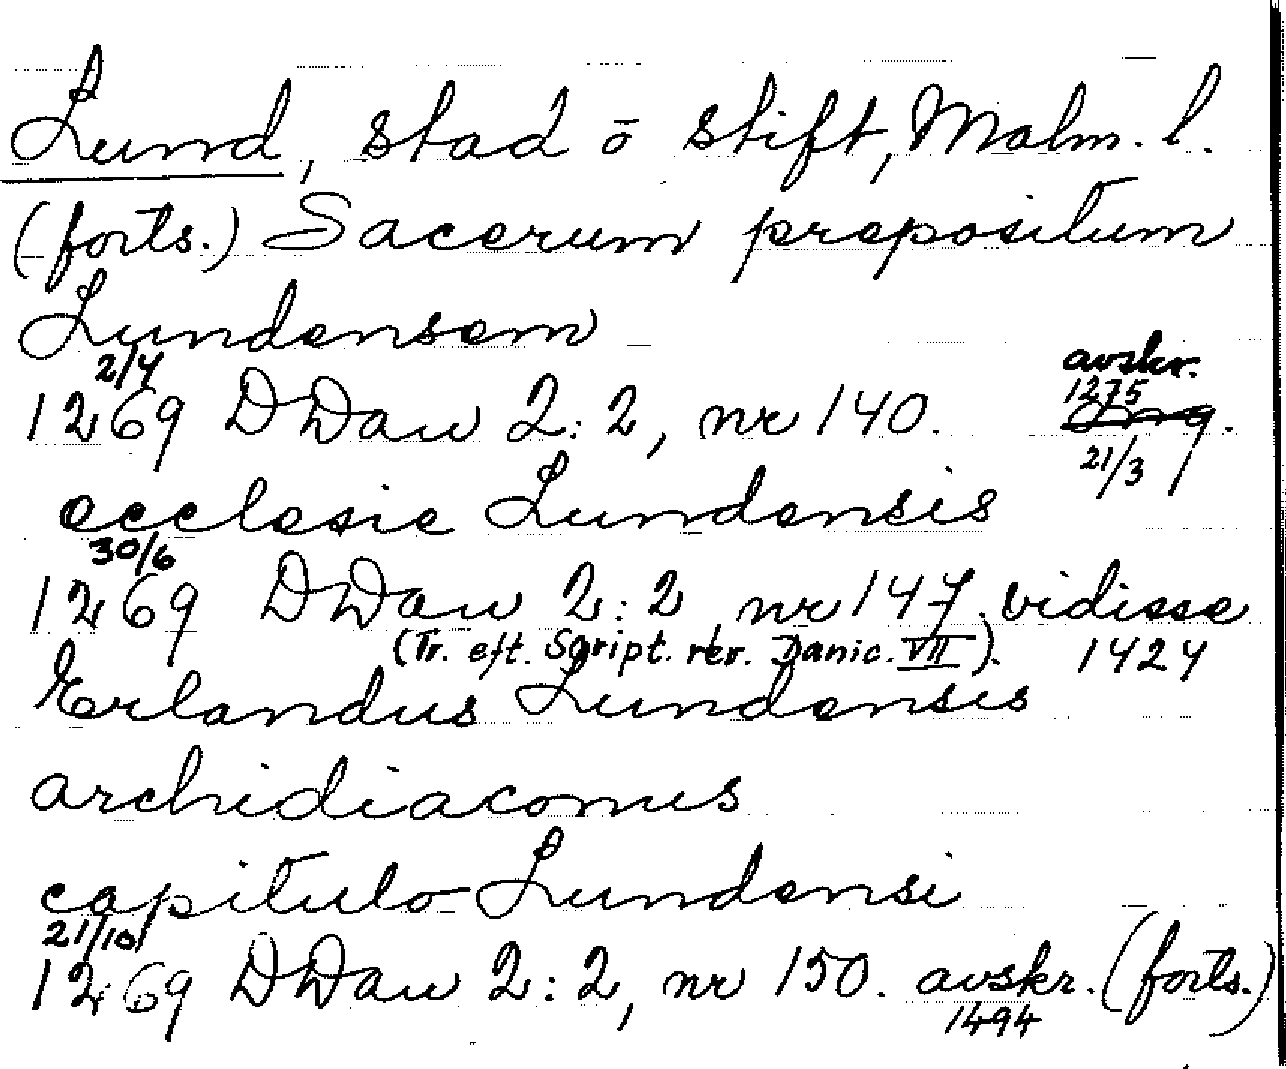 Lund, stad ō stift, Malm. l.
(forts.) Sacerum prepositum
Lundensem
2/4 avskr.
1269 DDan 2:2, nr 140. 1275
21/3
ecclesie Lundensis
30/6
1269 DDan 2:2, nr 147, vidisse
(Tr. eft. Script. rer. Danic. VII). 1424
Erlandus Lundensis
archidiaconus
capitulo Lundensi
21/10
1269 DDan 2:2, nr 150. avskr. (forts.)
1494